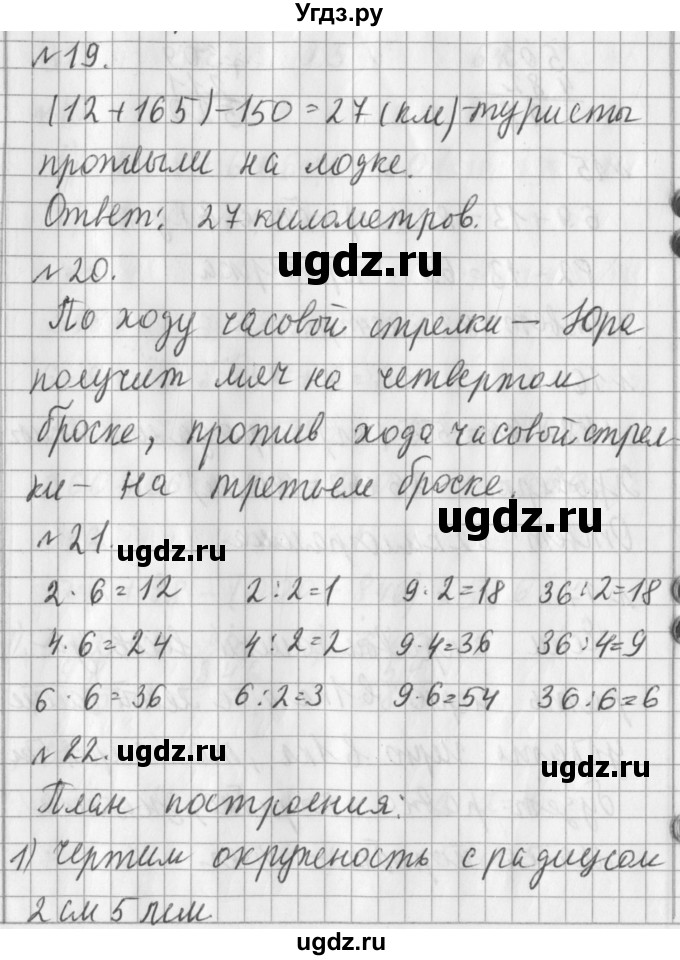 Угдз.ру
№19.
(12+165)-150=27(км)-туристы
проплыли на лодке.
Ответ: 27 километров.
ugdz.ru
№20.
По ходу часовой стрелки - Юра
получит мяч на четвертом
броске, против хода часовой стрел-
ки - на третьем броске.
ugdz.ru
№21.
ugdz.ru
2·6=12 2:2=1 9·2=18 36:2=18
4·6=24 4:2=2 9·4=36 36:4=9
6·6=36 6:2=3 9·6=54 36:6=6
№22.
ugdz.ru
ugdz.ru
План построения:
1) Чертим окружность с радиусом
2 см 5 мм
ugdz.ru